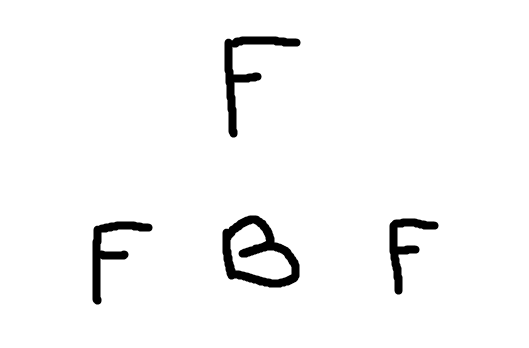 F
F B F